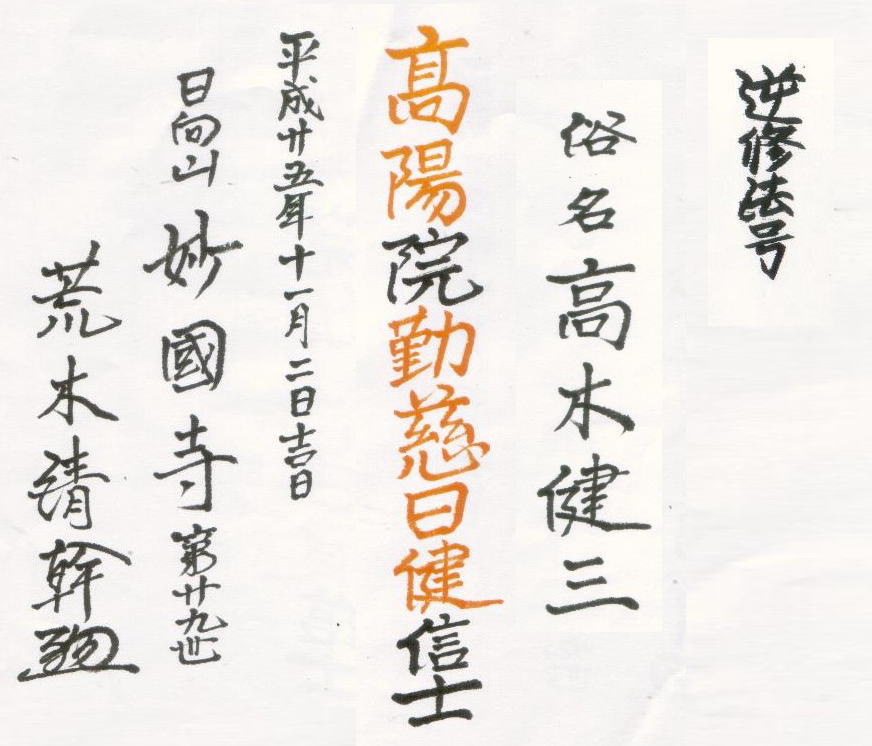 逆修法号
俗名 高木健三
髙陽院勤慈日健信士
平成廿五年十一月二日吉日
日向山 妙國寺 第廿九世
荒木靖幹